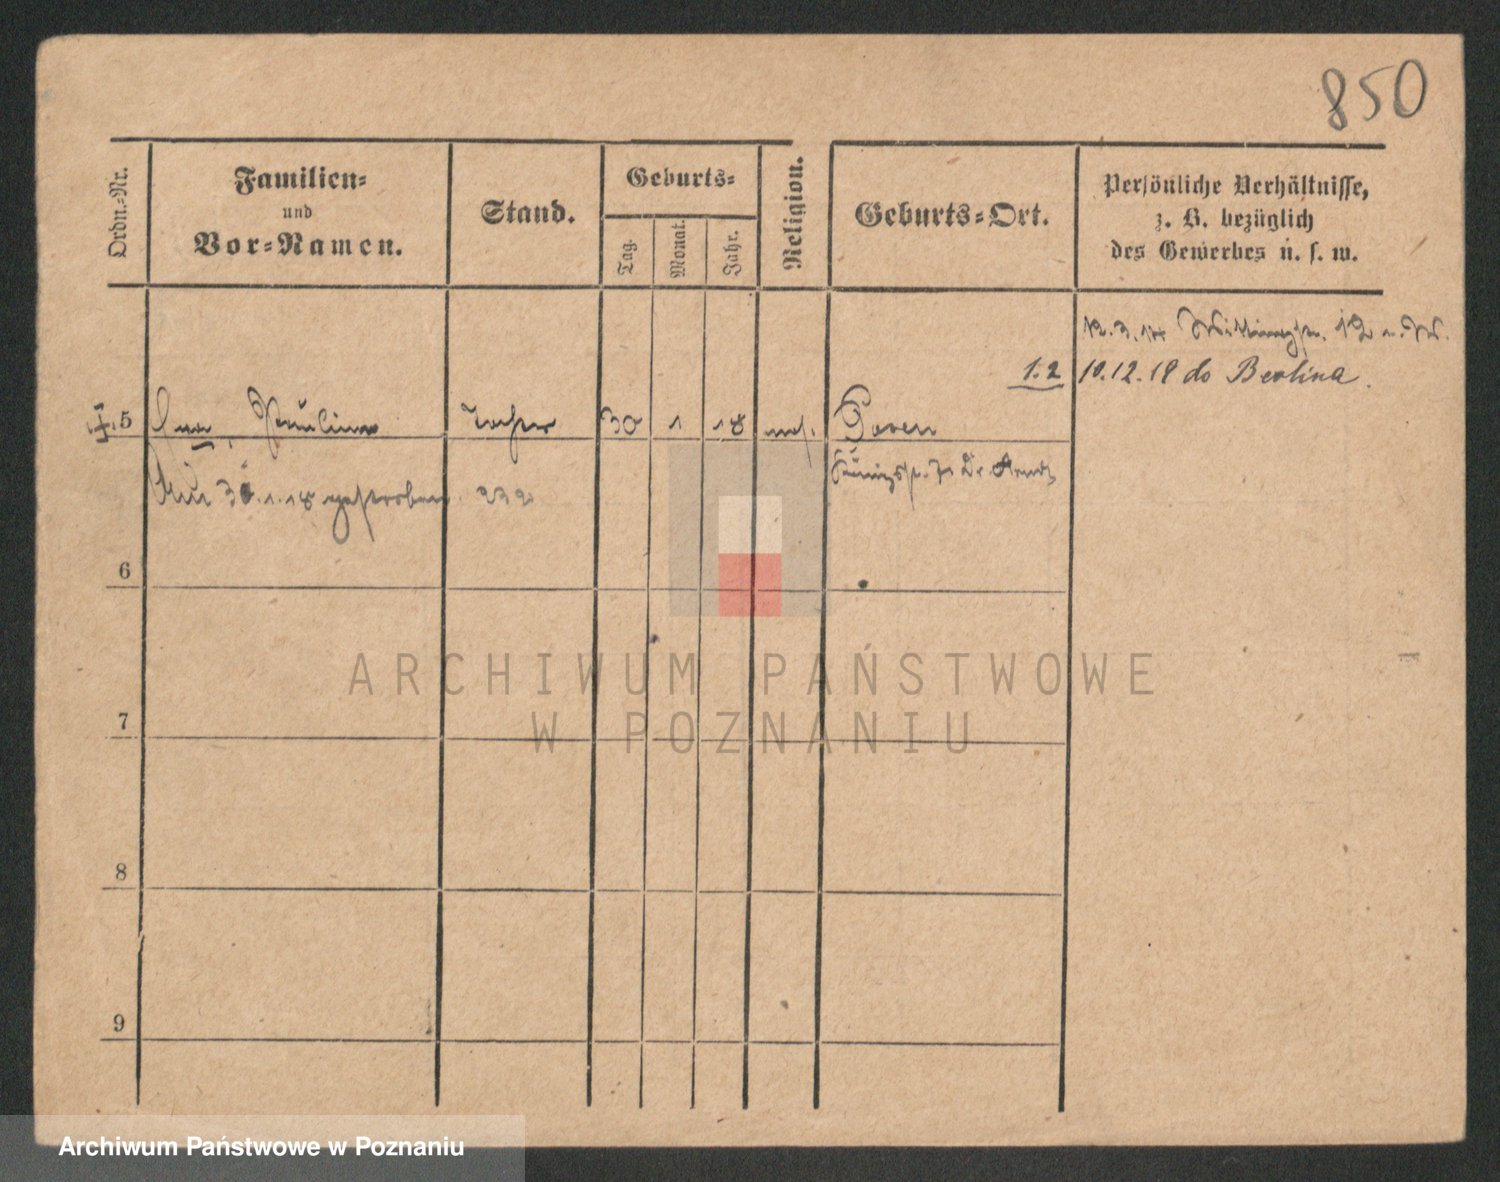 850
Ordn.-Nr.
Familien-
und
Vor-Namen.
Stand.
Geburts-
Tag.
Monat.
Jahr.
Religion.
Geburts-Ort.
Persönliche Verhältnisse,
z. B. bezüglich
des Gewerbes u. s. w.
12.3.14
1.2
10.12.18 do Berlina.
5
Paulina
Tochter
30
1
18
Posen
30.1.18 gestorben 232
6
7
8
9
ARCHIWUM PAŃSTWOWE
W POZNANIU
Archiwum Państwowe w Poznaniu